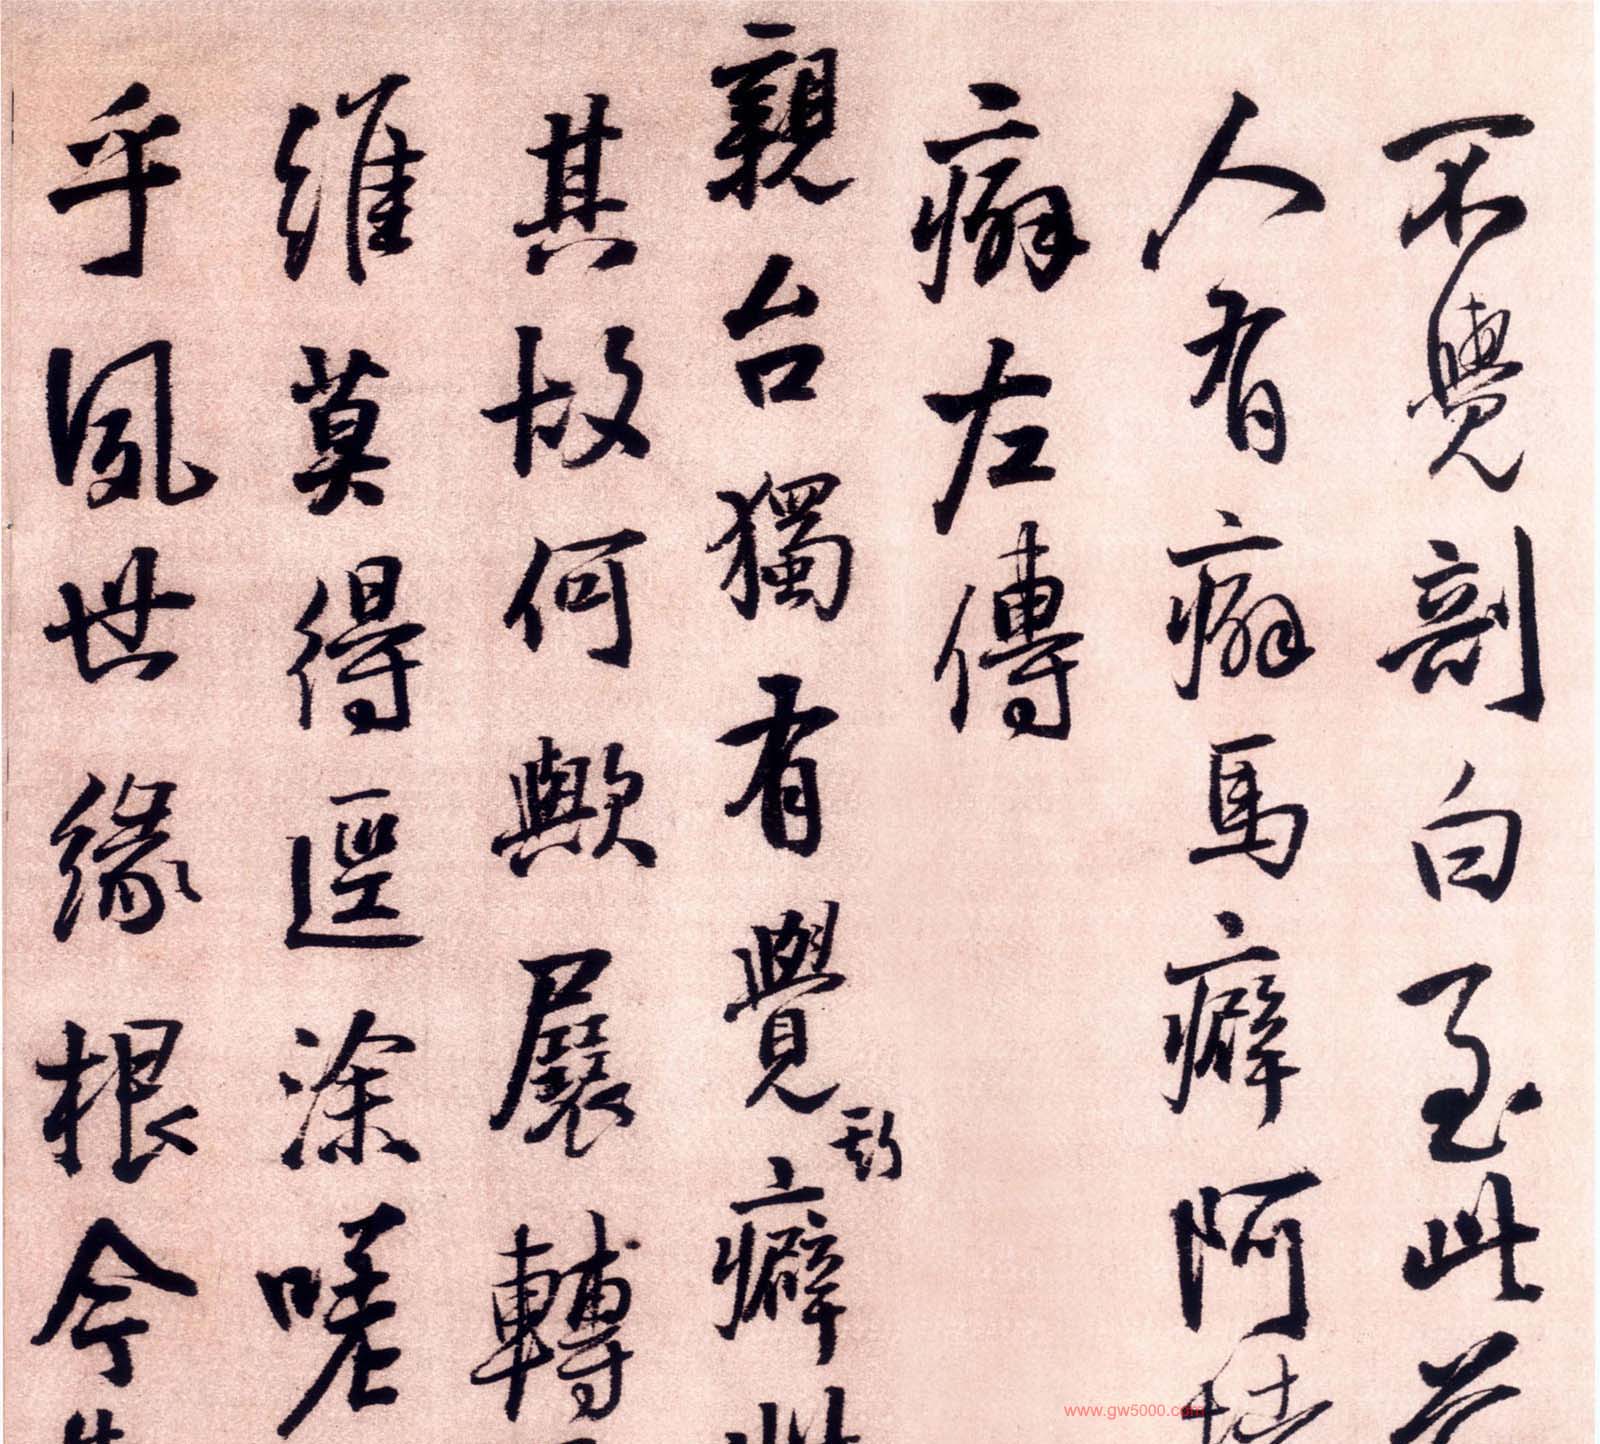 不覺剖白至此昔
人有癖馬癖阿堵
癖左傳
親台獨有覺斯癖此
其故何歟展轉
維莫得逕涂嗟
乎夙世緣根今生
www.gw5000.com